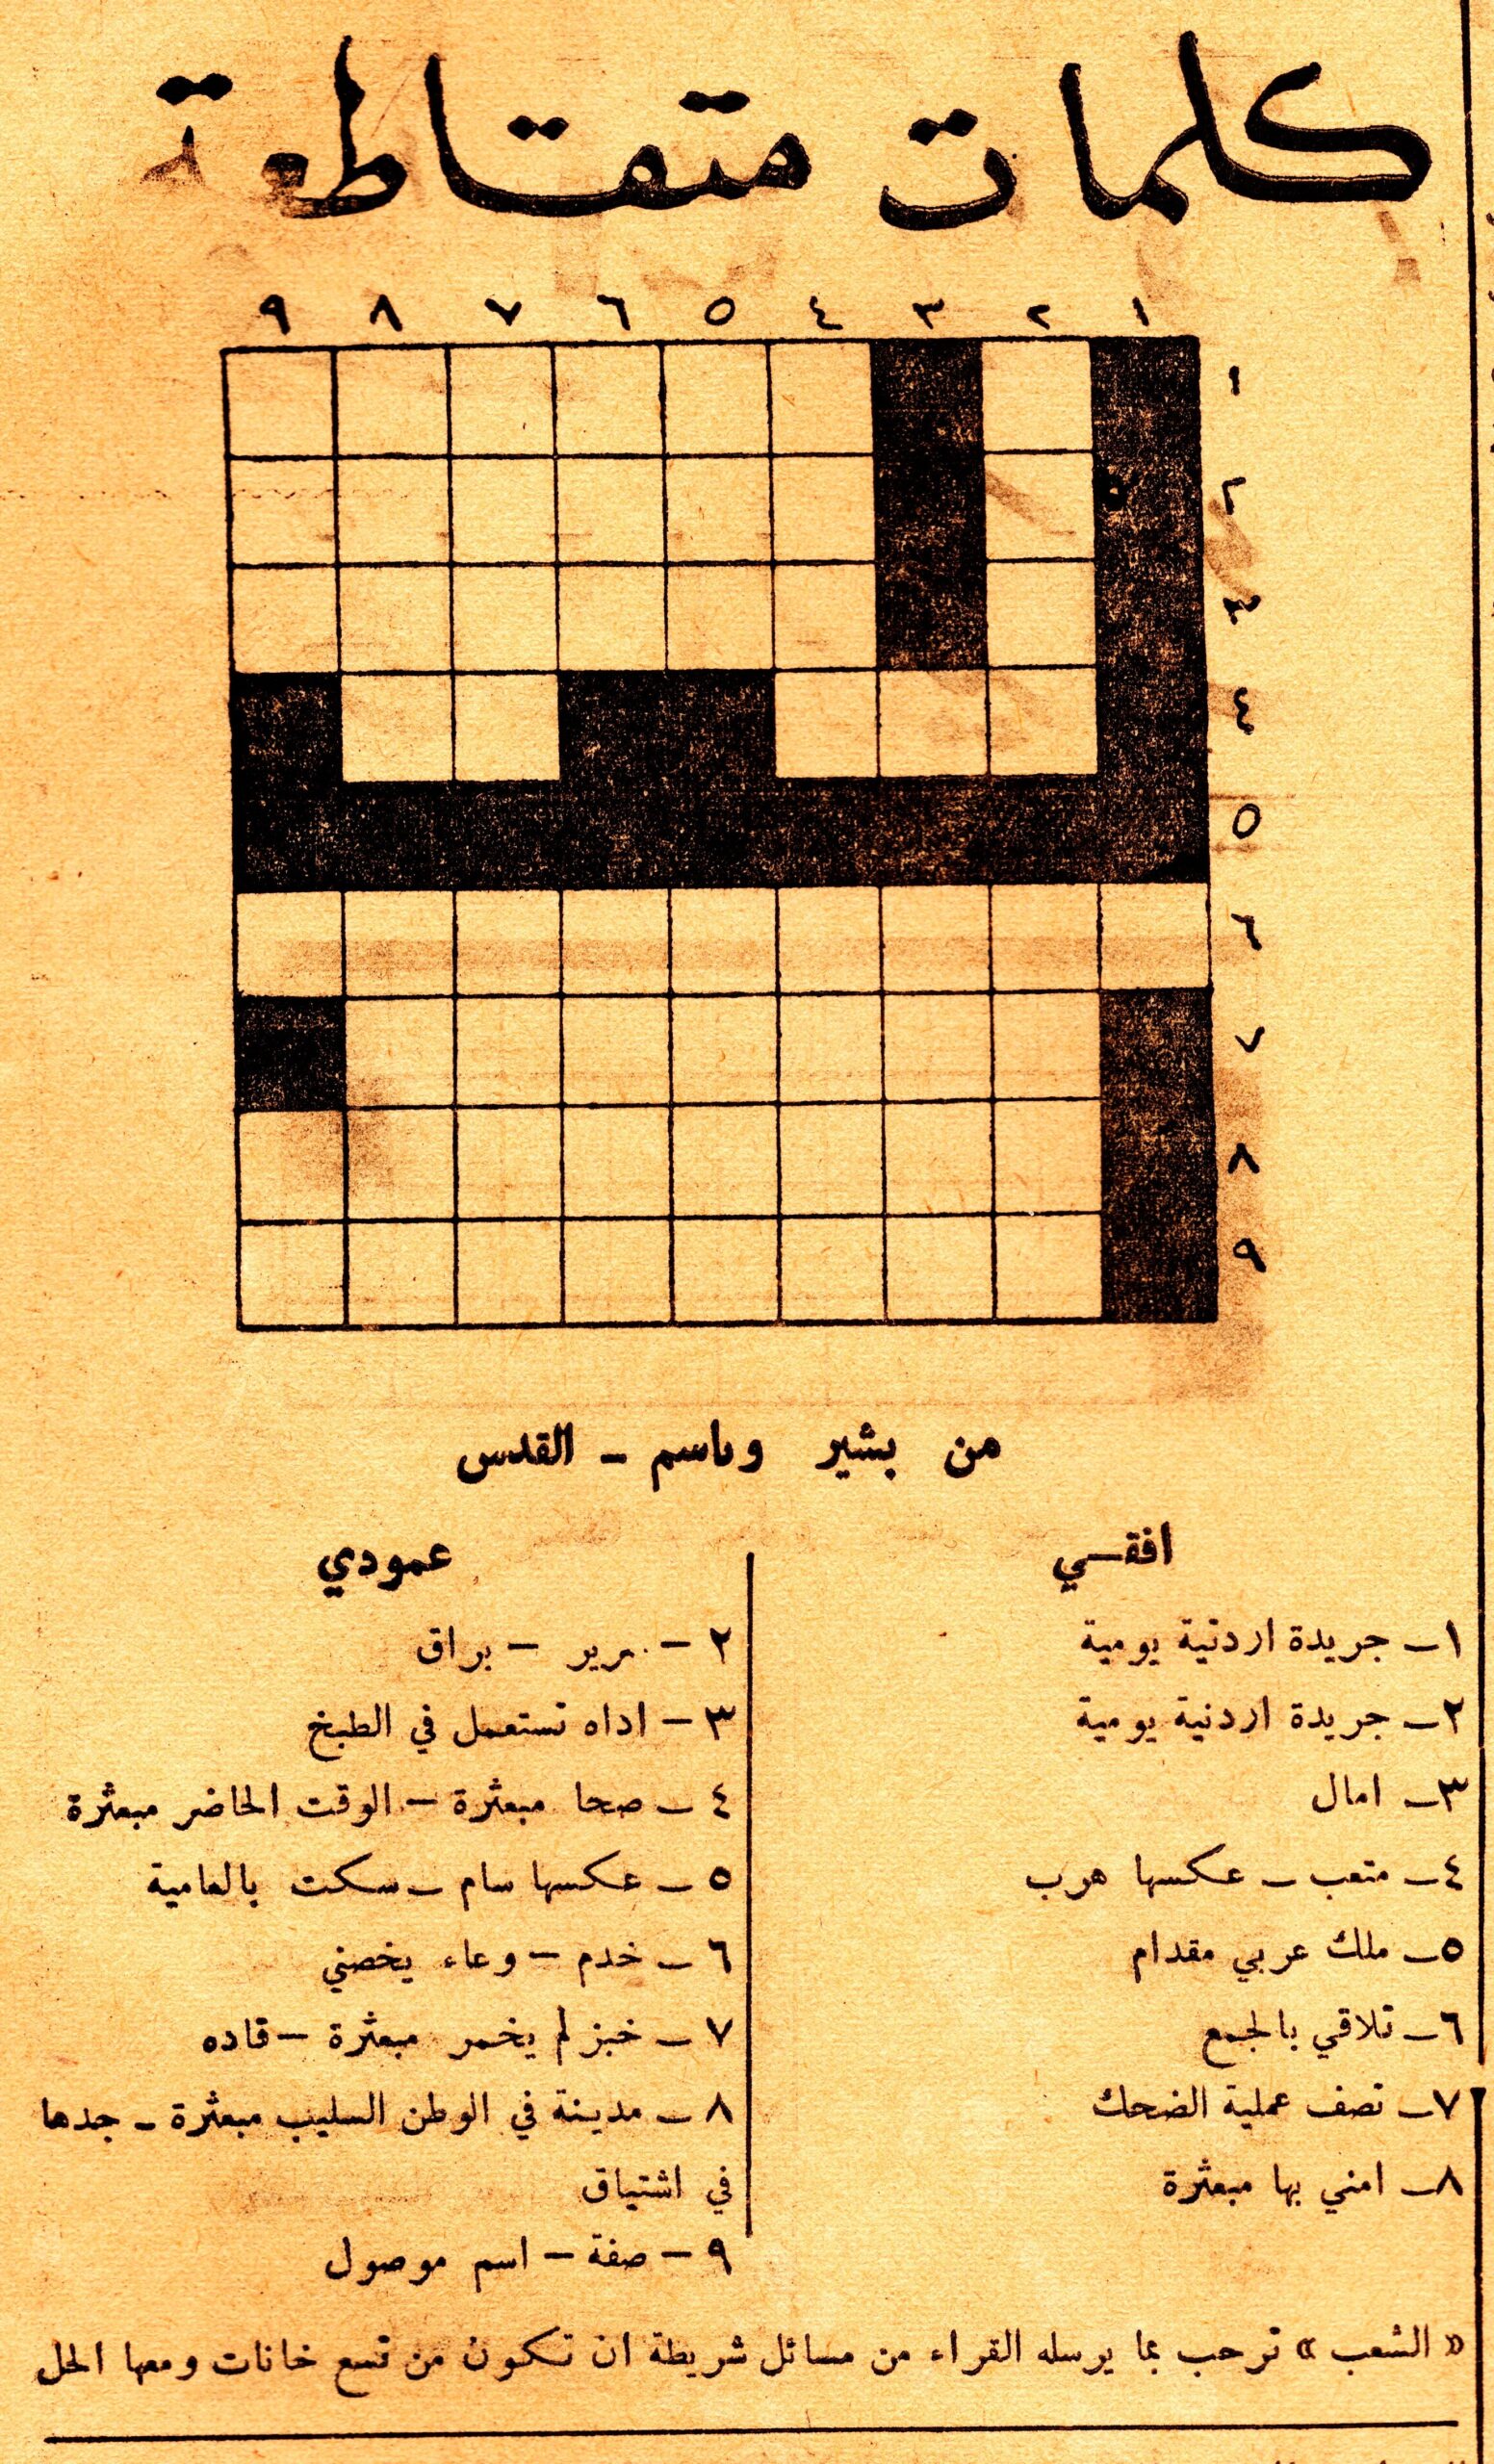 كلمات متقاطعة
١ ٢ ٣ ٤ ٥ ٦ ٧ ٨ ٩
١
٢
٣
٤
٥
٦
٧
٨
٩
من بشير وباسم - القدس
افقي
١ - جريدة اردنية يومية
٢ - جريدة اردنية يومية
٣ - امال
٤ - متعب - عكسها هرب
٥ - ملك عربي مقدام
٦ - تلاقي بالجمع
٧ - نصف عملية الضحك
٨ - امني بها مبعثرة
عمودي
٢ - - براق
٣ - اداه تستعمل في الطبخ
٤ - صحا مبعثرة - الوقت الحاضر مبعثرة
٥ - عكسها سام - سكت بالعامية
٦ - خدم - وعاء يخصني
٧ - خبز لم يخمر مبعثرة - قاده
٨ - مدينة في الوطن السليب مبعثرة - جدها
في اشتياق
٩ - صفة - اسم موصول
« الشعب » ترحب بما يرسله القراء من مسائل شريطة ان تكون من تسع خانات ومعها الحل